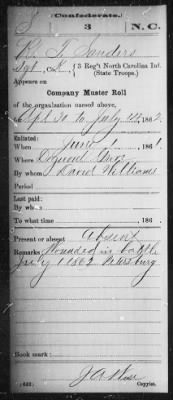 Confederate.
S 3 N.C.
R. T. Sanders
Sgt, Co. K, 3 Reg't North Carolina Inf.
(State Troops.)
Appears on
Company Muster Roll
of the organization named above,
for Apl 30 to July 1st, 1862.
Enlisted:
When June 1, 1861.
Where
By whom David Williams
Period
Last paid:
By whom
To what time , 186 .
Present or absent Absent
Remarks: Wounded in battle
July 1 1862
Book mark:
(642) Copyist.